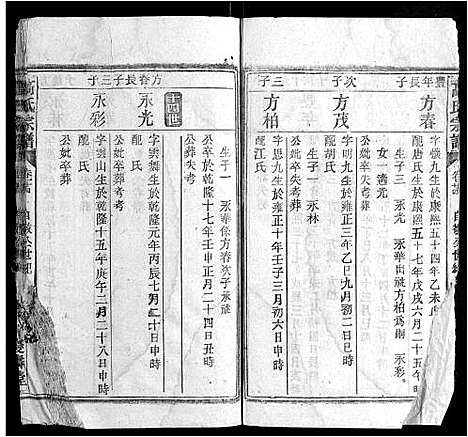 豐年長子
方春
字懷九生於康熙五十四年乙未
配唐氏生於康熙五十七年戊戌六月二十五
生子三 永光 永華出祧方柏爲嗣 永彩
女一 適尤
次子
方茂
字明九生於雍正三年乙巳九月初六日寅時
公妣卒失考葬
配胡氏
生子一 永林
三子
方柏
字 九生於雍正十年壬子三月初六日申時
配江氏
公卒於乾隆十七年壬申正月二十四日丑時
生子一 永華係方春次子承祧
公葬失考
方春長子
永光
字雲舞生於乾隆元年丙辰七月二十日申時
配 氏
公妣卒葬失考
三子
永彩
字雲山生於乾隆十五年庚午二月二十八日申時
配 氏
公妣卒葬
氏宗譜